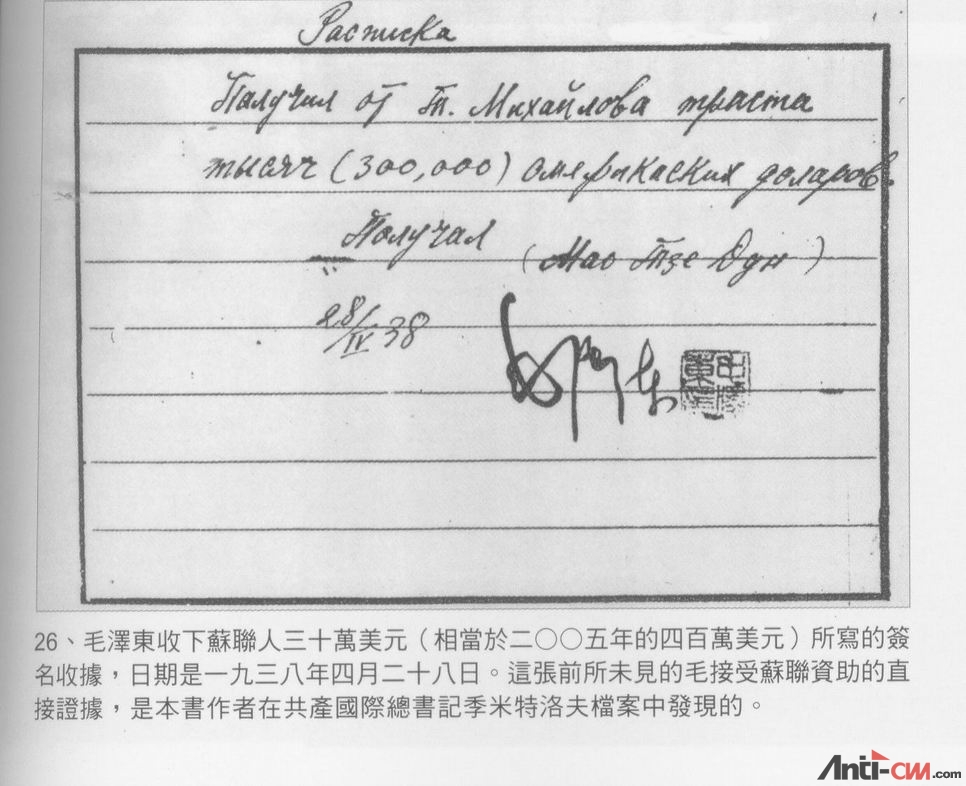 Расписка
Палучил от т. Михайлова триста
тысяч (300,000) америкаских доларов.
Получал (Мао Тзе Дун)
28/IV 38
26、毛澤東收下蘇聯人三十萬美元（相當於二〇〇五年的四百萬美元）所寫的簽
名收據，日期是一九三八年四月二十八日。這張前所未見的毛接受蘇聯資助的直
接證據，是本書作者在共產國際總書記季米特洛夫檔案中發現的。
Anti-CNN.com